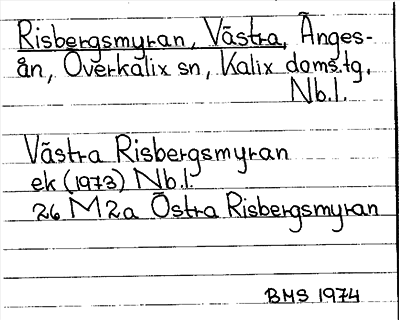 Risbergsmyran, Västra, Änges-
ån, Överkalix sn, Kalix doms.tg.
Nb.l.
Västra Risbergsmyran
ek (1973) Nb.l.
26 M 2a Östra Risbergsmyran
BMS 1974